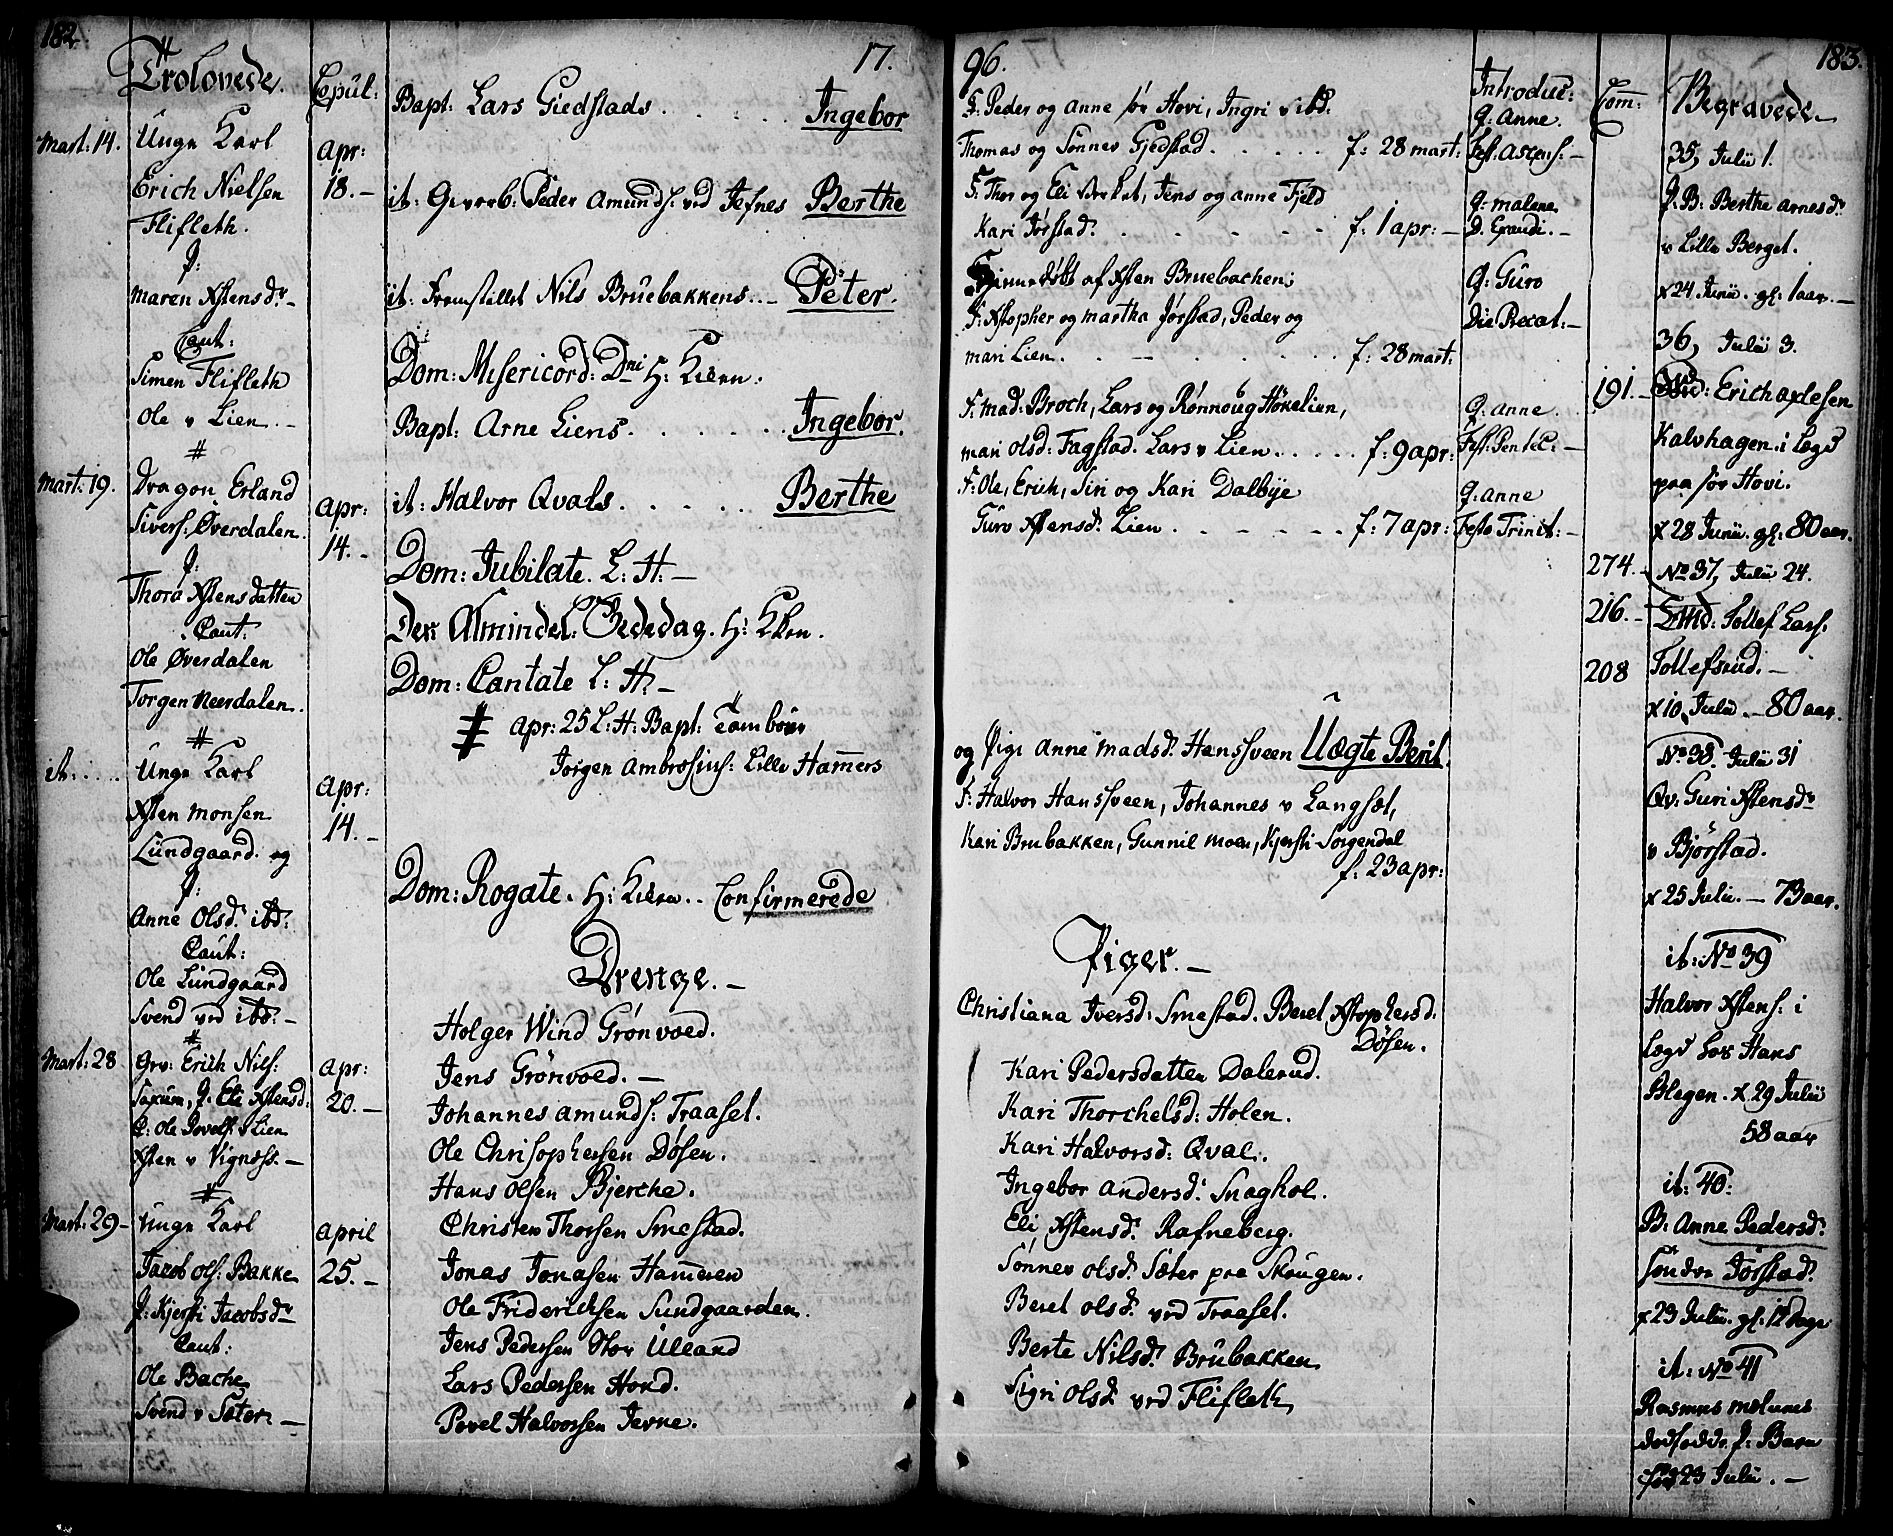 182.
17.
Trolovede.
Copul:
Mart: 14.
Unge Karl
Erich Nielsen
Flifleth.
P:
Maren Xstensdr
Caut:
Simen Flifleth
Ole v Lien
Apr:
18.
Mart: 19.
Dragon Erland
Sivers: Øverdalen.
P:
Thora Xstensdatten
Caut:
Ole Øverdalen
Torgen Neerdalen.
Apr:
14.
it:
Unge Karl
Xsten Monsen
Lundgaard. og
P:
Anne Olsd. ibd:
Caut:
Ole Lundgaard
Svend vrd ibd:
Apr:
14.
Mart: 28
Grv: Erich Nils:
P: Eli Xstensd:
C: Ole Povels: v Lien
Xsten v Vigness.
Apr:
20.
Mart: 29
Unge Karl
Jacob Ols: Bakke
P: Kjersti Jacobsdr
Caut:
Ole Bache
Svend v Sæter
April
25.
Bapt: Lars Giedstads . . . . . Ingebor
it: Peder Amunds: vrd Jefnes Berthe
it: Fremstillet Nils Bruebakkens. Peter.
Dom: Misericord: Dni H: Kiern.
Bapt: Arne Liens. . . . . . Ingebor.
it: Halvor Qvals. . . . . . Berthe
Dom: Jubilate. L: H.
Den Almindel: Bededag. H: Kiern.
Dom: Cantate L: H.
Apr: 25 L: H: Bapt: Tambour
Jørgen Ambrosius: Lille Hamers
Dom: Rogate. H: Kiern.. Confirmerede
Drenge.
Holger Wind Grønvoed.
Jens Grönvoed.
Johannes Amunds: Traaset.
Ole Chrisophersen Døsen.
Hans Olsen Bjerche.
Christen Thorsen Smestad.
Jonas Jonasen Hameren
Ole Friderichsen Sundgaarden.
Jens Pedersen Stor Ulland
Lars Pedersen Hond.
Povel Halvorsen Jevne.
96.
183.
F: Peder og Anne sør Hovi, Ingri ibd.
Thomas og Sønnev Gjedstad. . . . . f: 28 mart:
F: Thor og Eli Jens og Anne Fjeld
Kari Jørstad. . . . . . . f: 1 apr:
Hjemmedøbt af Xsten Bruebachen;
F: Xstopher og Martha Jørstad, Peder og
Mari Lien. . . . . . . f: 28 mart:
F: Mad: Broch, Lars og Rønnoug Høkelien,
Mari Olsd: Fagstad. Lars v Lien . . . . . f: 9 apr:
F: Ole, Erich, Siri og Kari Dalbye
Guro Xstensd. Lien . . . . . . f: 7 apr:
og Pige Anne Madsd. Hanssveen Uægte Berit.
F: Halvor Hanssveen, Johannes v Langsæt,
Kari Brubakken, Gunnil Moen, Kjersti Sorgendal
f: 23 apr:
Piger.
Christiana Iversd: Smestad. Beret Xstophersd.
Døsen.
Kari Pedersdatten Dalerud.
Kari Thorchelsd: Holen.
Kari Halvorsd: Qval.
Ingebor Andersd: Snaghol.
Eli Xstensd. Rafneberg.
Sönnev Olsd. Sæter paa Skougen.
Beret Olsd. vrd Traaset.
Berte Nilsd. Brubakken
Sigri Olsd. vrd Flifleth
Introduc:
Q: Anne.
Fest: Ascens:
Q: Malene
D. Exaudi.
Q: Guro
Die Precat:
Q: Anne.
Fest: Pentec:
Q: Anne
Festo Trinit:
Com:
191.
274.
216.
208
Begravede
35, Julii 1.
P: B: Berthe Arnesdr
v Lille Berget.
x 24 Junii. gl: 1 aar.
36, Julii 3.
Erich Axlesen
Kalvhagen. i Lægd
paa sør Hovi.
x 28 Junii. gl: 80 aar.
No 37, Julii 24.
End: Tollef Lars:
Tollefsrud.
x 10, Julii. 80 aar.
No 38. Julii 31
Qv: Guri Xstensdr
v Bjørstad.
x 25 Julii. 73 aar.
it: No 39
Halvor Xstens: i
Lægd hos Hans
Blegen. x 29 Julii
58 aar
it: 40.
B: Anne Pedersd:
Søndre Jørstad.
x 23 Julii. gl: 12 Dage
it: No 41
Rasmus Moluns
dødfødde P: Barn
23 Julii.